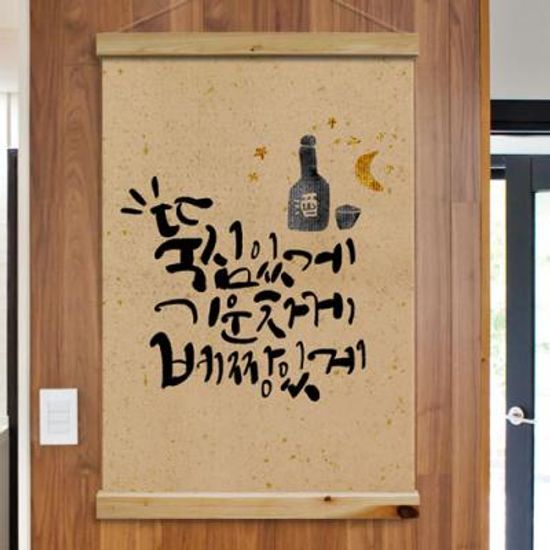 酒
뚝심있게
기운차게
배짱있게